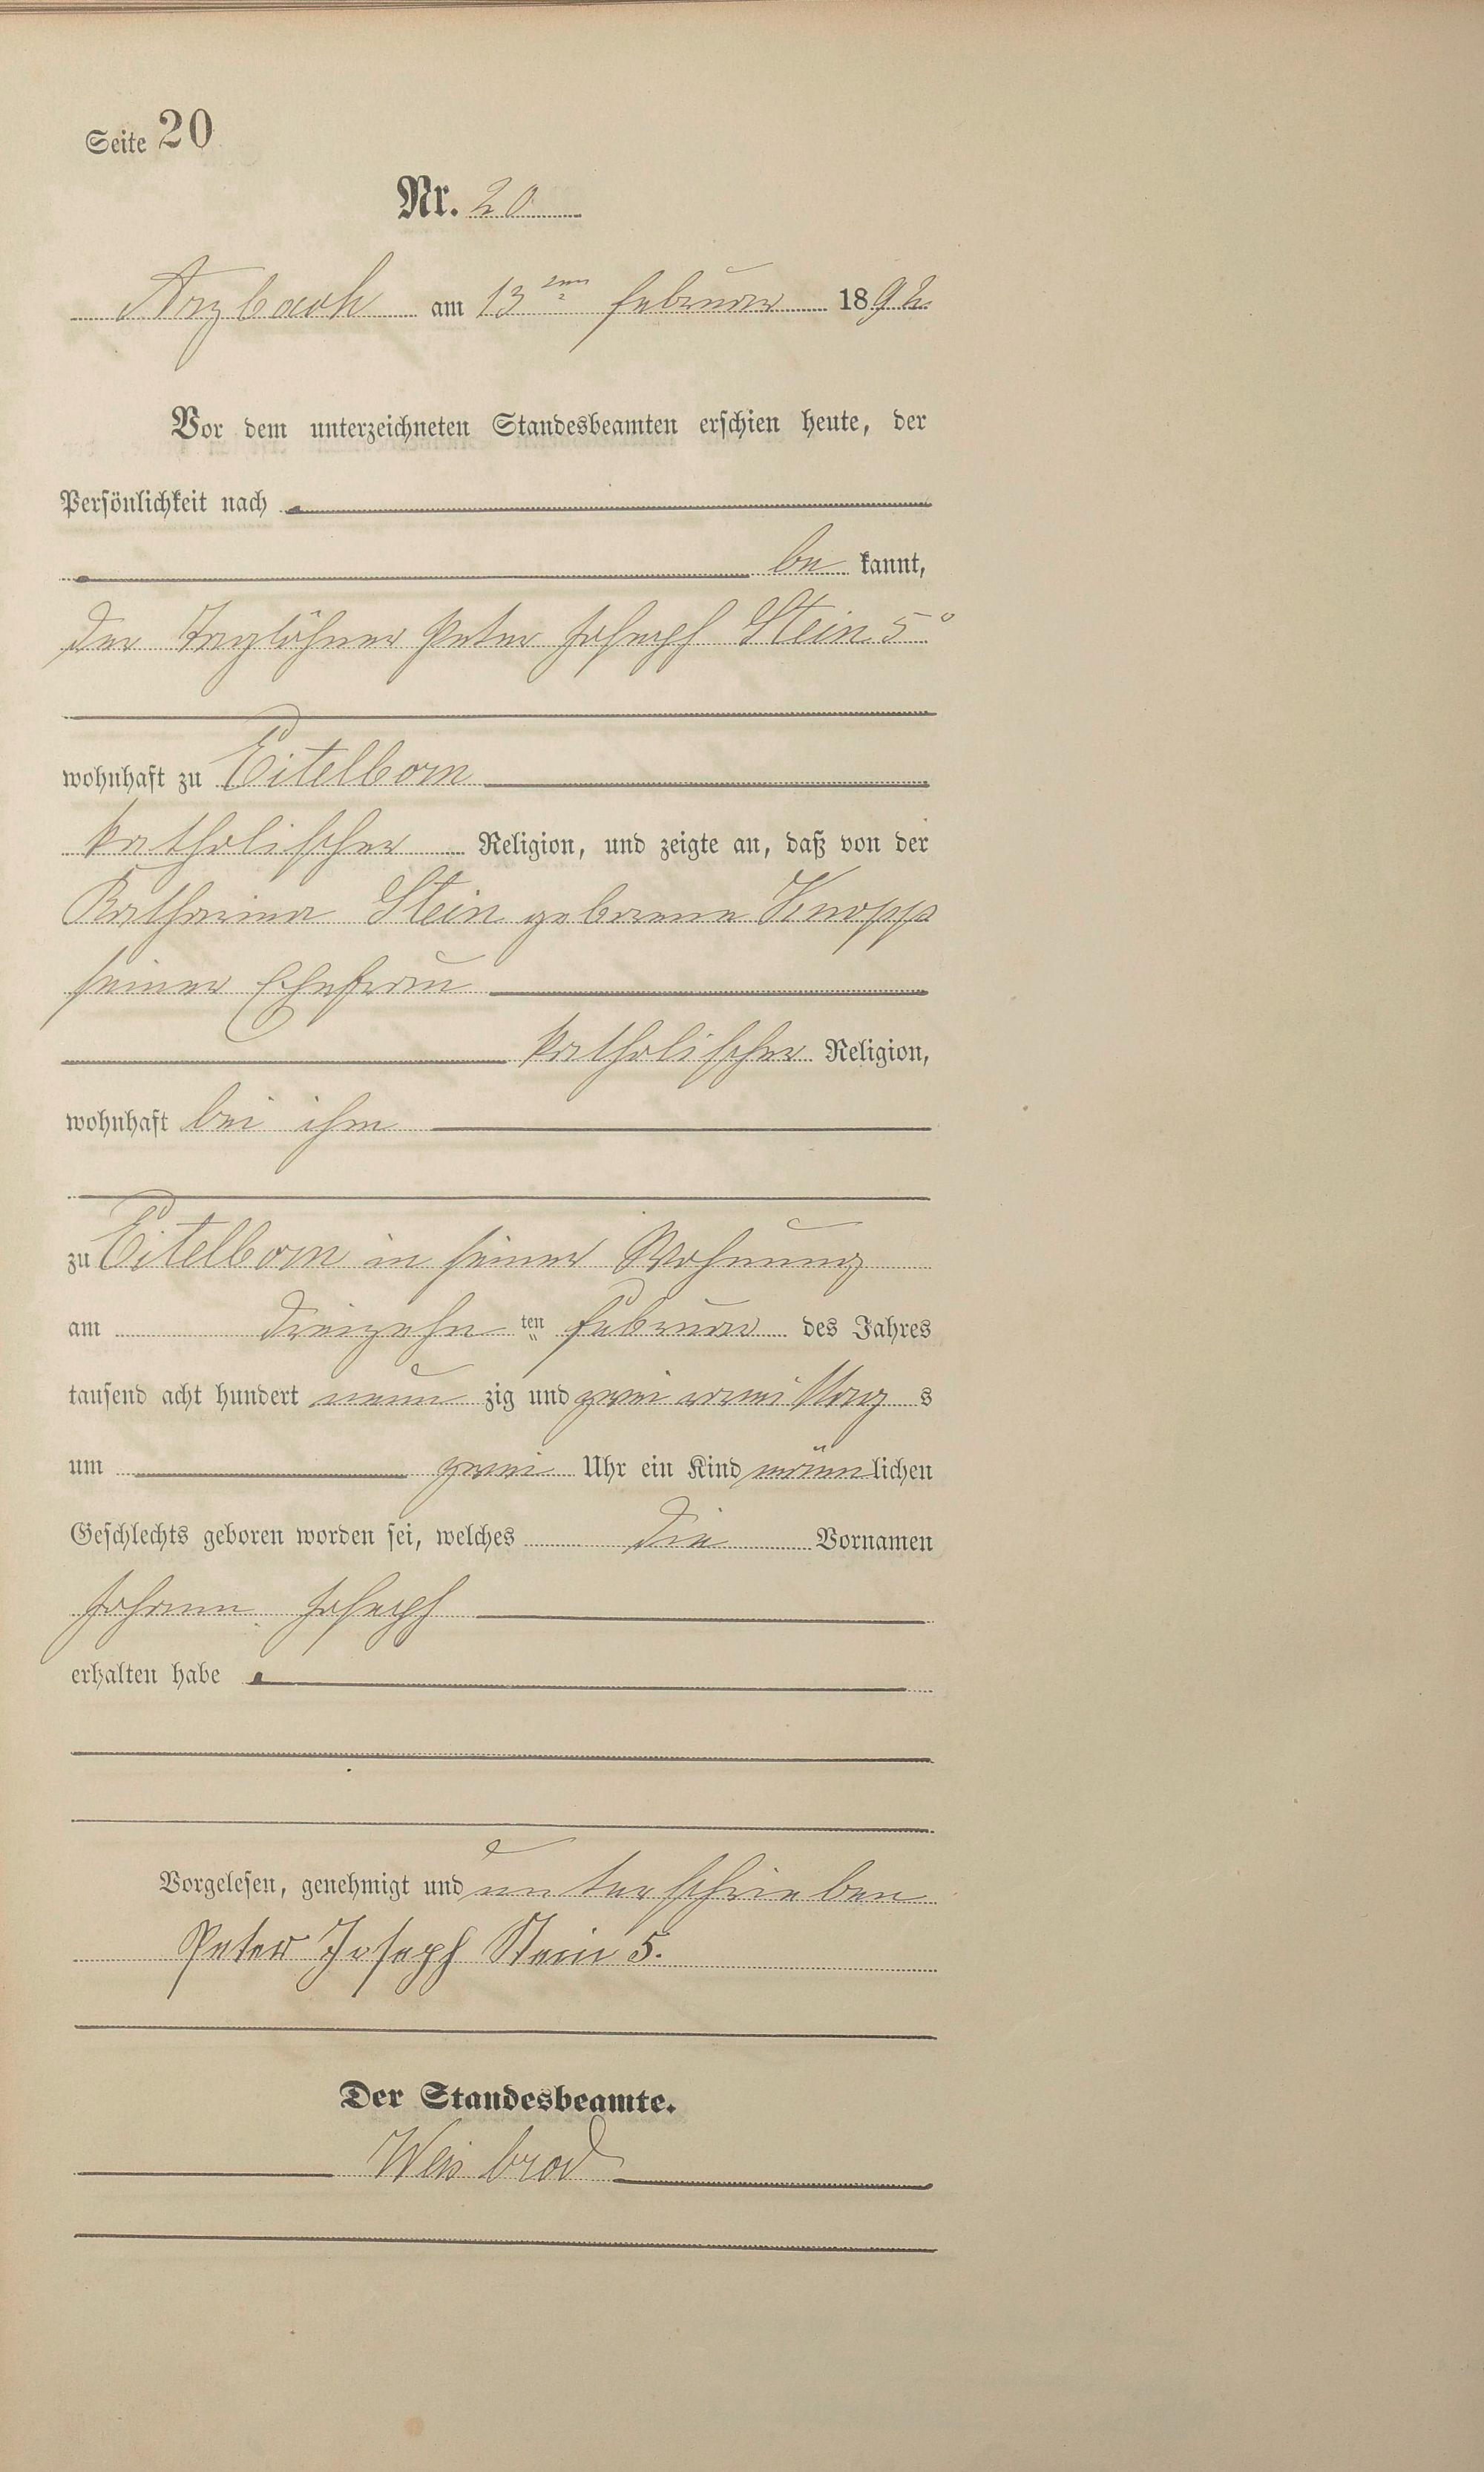 Seite 20
Nr. 20
Arzbach am 13ten Februar 1892
Vor dem unterzeichneten Standesbeamten erschien heute, der
Persönlichkeit nach
be kannt,
der Taglöhner Peter Joseph Stein 5.
wohnhaft zu Eitelborn
katholischer Religion, und zeigte an, daß von der
Katharina Stein geborene Knopp
seiner Ehefrau
katholischer Religion,
wohnhaft bei ihm
zu Eitelborn in seiner Wohnung
am dreizehn ten Februar des Jahres
tausend acht hundert neun zig und zwei vormittag s
um zwei Uhr ein Kind männlichen
Geschlechts geboren worden sei, welches die Vornamen
Johann Joseph
erhalten habe
Vorgelesen, genehmigt und unterschrieben
Peter Joseph Stein 5.
Der Standesbeamte.
Weisbrod